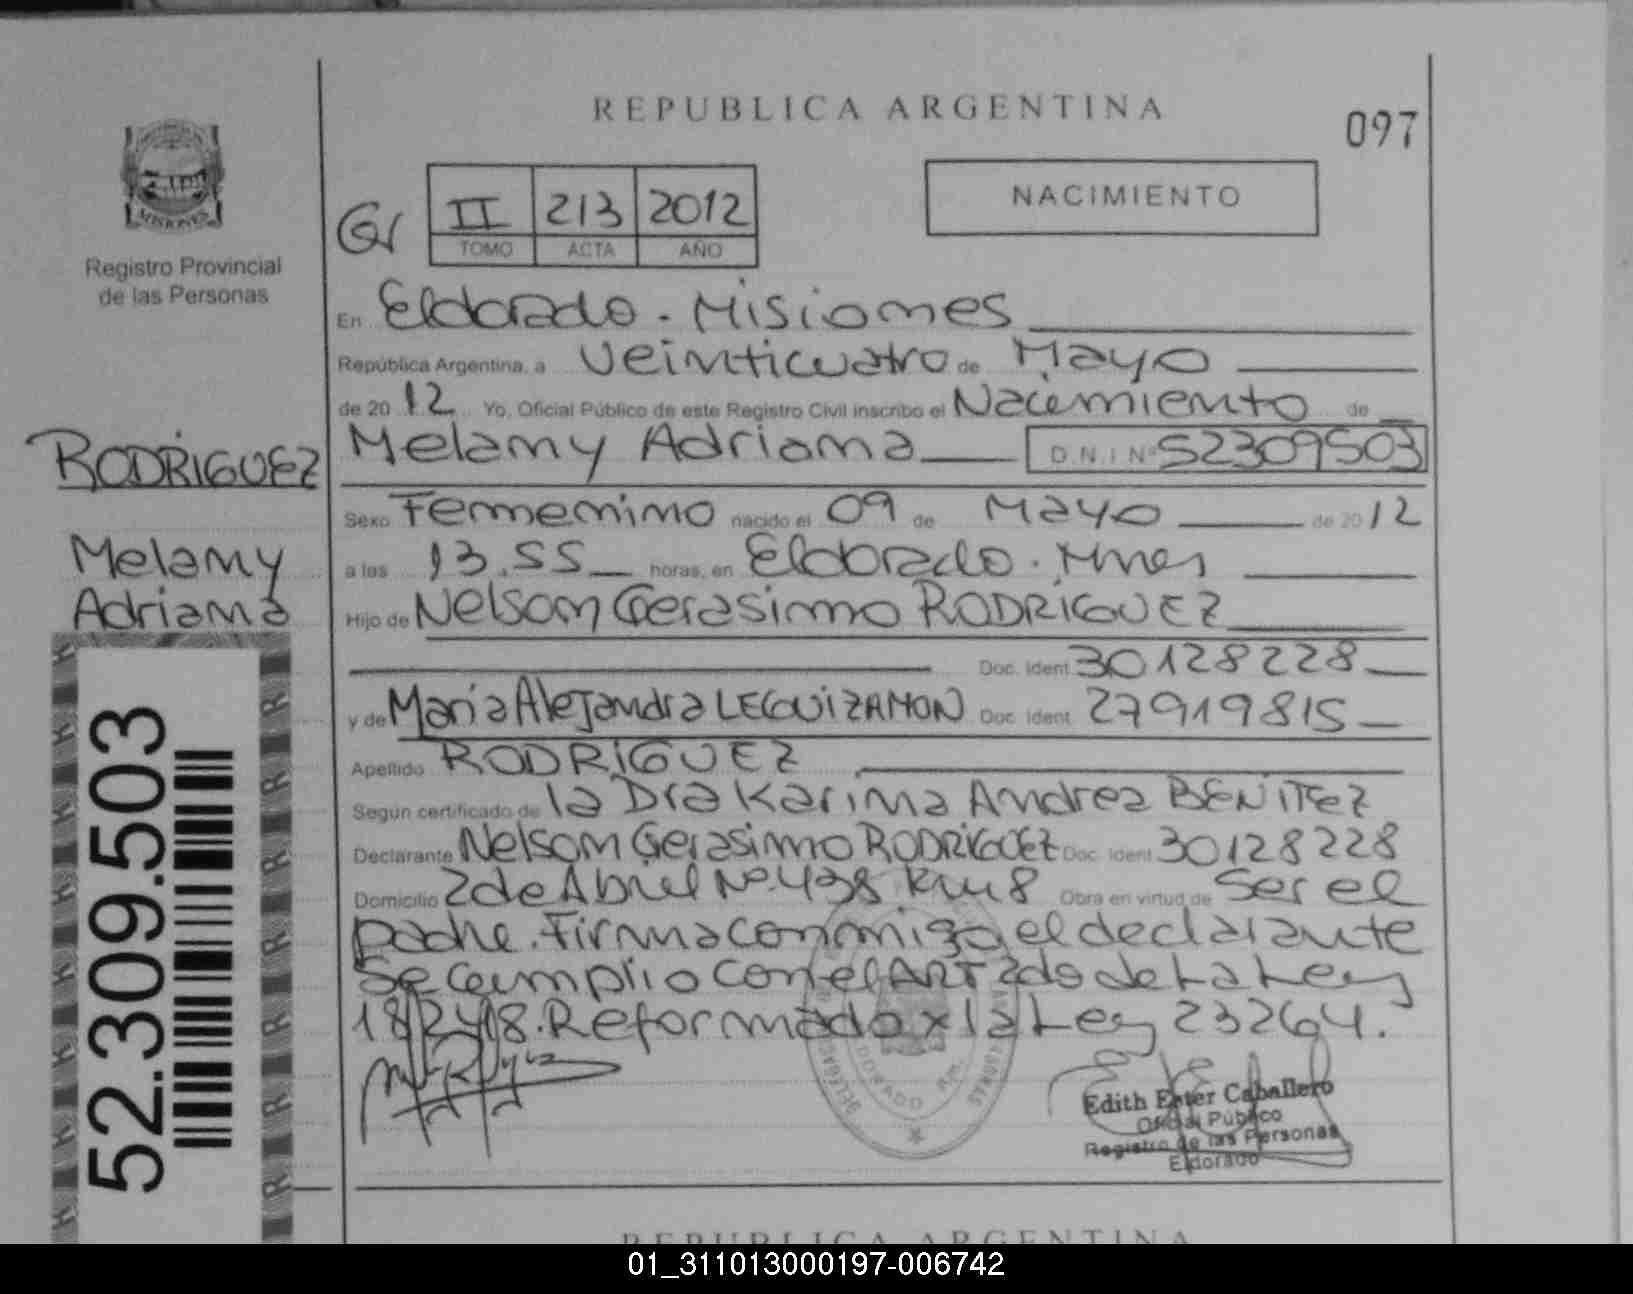 REPUBLICA ARGENTINA
097
MISIONES
Registro Provincial
de las Personas
NACIMIENTO
GV II 213 2012
TOMO ACTA AÑO
En Eldorado - Misiones
República Argentina, a Veinticuatro de Mayo
de 2012 Yo, Oficial Público de este Registro Civil inscribo el Nacimiento de
RODRIGUEZ
Melany Adriana D.N.I Nº 52309503
Sexo Femenino nacido el 09 de Mayo de 2012
Melany
Adriana
a las 13.55 horas, en Eldorado. Mnes
Hijo de Nelson Gerasimo RODRIGUEZ
Doc. Ident 30128228
y de Maria Alejandra LEGUIZAMON Doc. Ident 27919815
Apellido RODRIGUEZ
Según certificado de la Dra Karina Andrea BENITEZ
Declarante Nelson Gerasimo RODRIGUEZ Doc. Ident 30128228
Domicilio 2 de Abril Nº 438 Km 8 Obra en virtud de Ser el
padre. Firma conmigo el declarante
Se cumplio con el ART 2do de La Ley
18248. Reformado x la Ley 23264.
52.309.503
ELDORADO
Edith Ester Caballero
Oficial Público
Registro de las Personas
Eldorado
REPUBLICA ARGENTINA
01_311013000197-006742